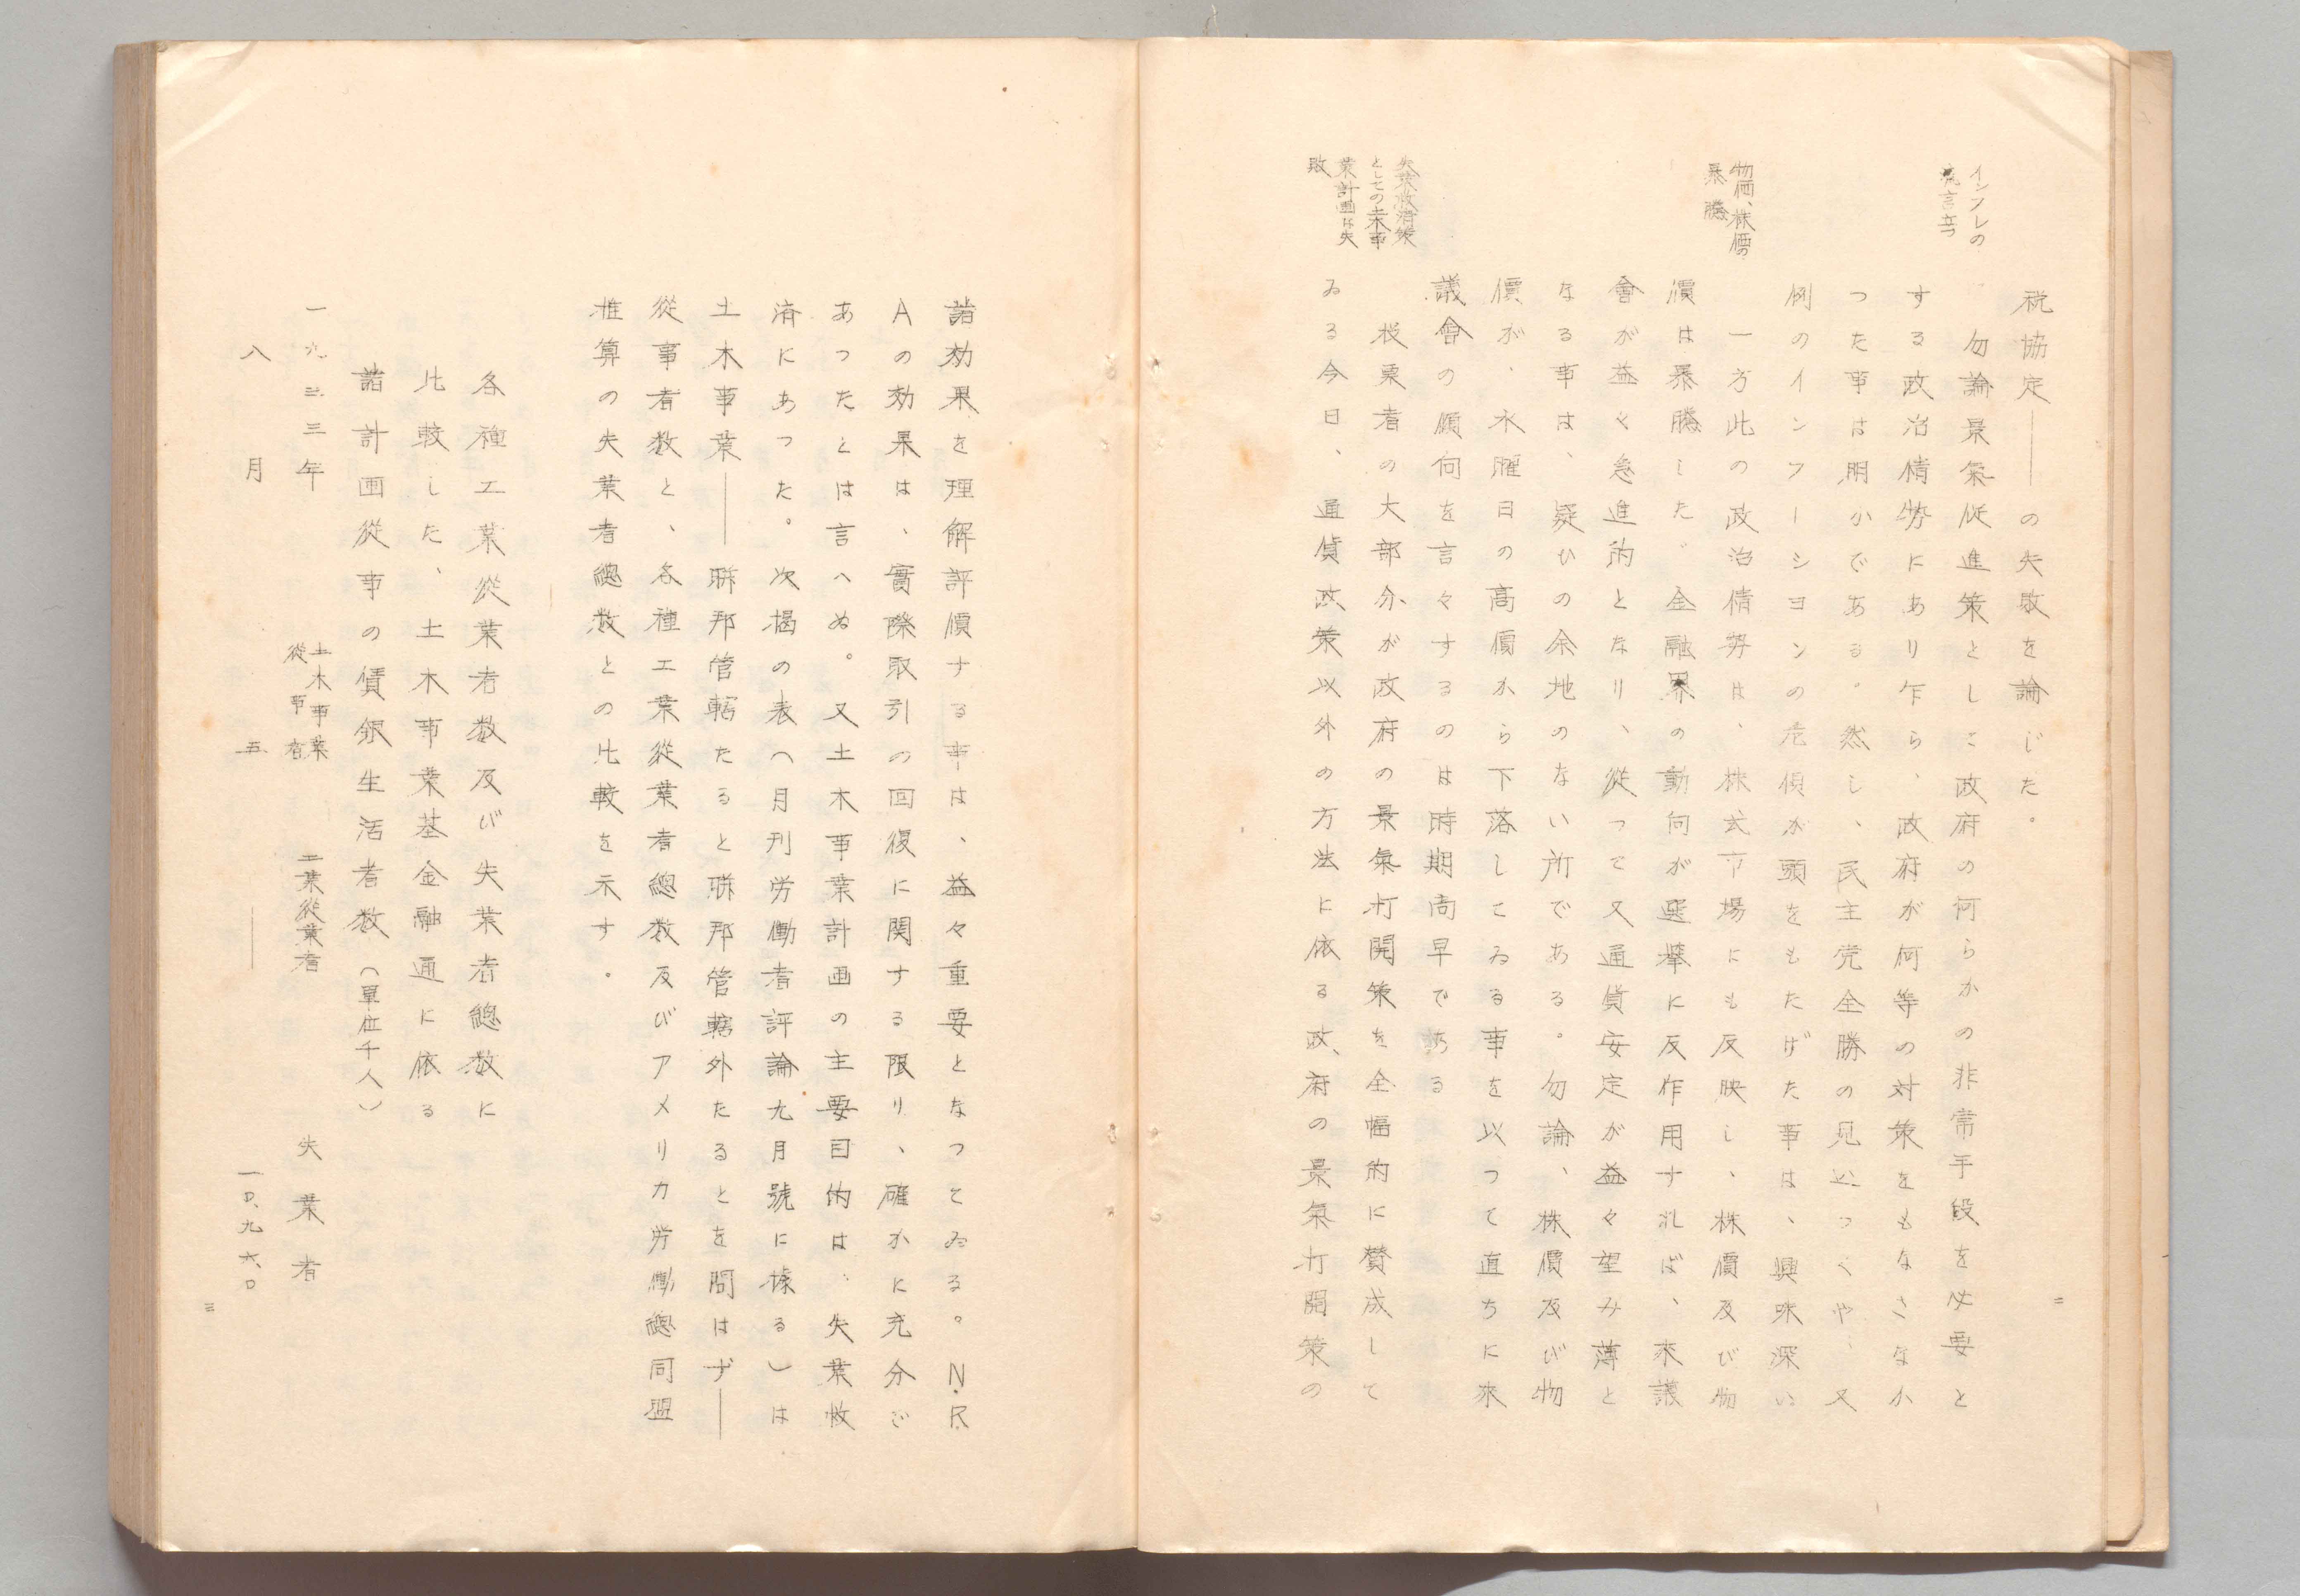 インフレの
流言立つ
税協定——の失敗を論じた。
勿論景氣促進策として政府の何らかの非常手段を必要と
する政治情勢にあり乍ら、政府が何等の対策をもなさなか
つた事は明かである。然し、民主党全勝の見込つくや、又
例のインフーシヨンの危惧が頭をもたげた事は、興味深い
物価、株價の
暴騰
一方此の政治情勢は、株式市場にも反映し、株價及び物
價は暴騰した。金融界の動向が選擧に反作用すれば、來議
會が益々急進的となり、從つて又通貨安定が益々望み薄と
なる事は、疑ひの余地のない所である。勿論、株價及び物
價が、水曜日の高價から下落してゐる事を以つて直ちに來
議會の傾向を云々するのは時期尚早である
失業救済策
としての土木事
業計画は失
敗
投票者の大部分が政府の景氣打開策を全幅的に賛成して
ゐる今日、通貨政策以外の方法に依る政府の景氣打開策の
二
諸効果を理解評價する事は、益々重要となつてゐる。N.R.
Aの効果は、實際取引の回復に関する限り、確かに充分で
あつたとは言へぬ。又土木事業計画の主要目的は、失業救
済にあつた。次掲の表(月刊労働者評論九月號に據る)は
土木事業——聯邦管轄たると聯邦管轄外たるとを問はず——
從事者数と、各種工業從業者總数及びアメリカ労働總同盟
推算の失業者總数との比較を示す。
各種工業從業者数及び失業者總数に
比較した、土木事業基金融通に依る
諸計画從事の賃銀生活者数(單位千人)
一九三三年 土木事業從事者 工業從業者 失業者
八月 五 — 一〇、九六〇
三